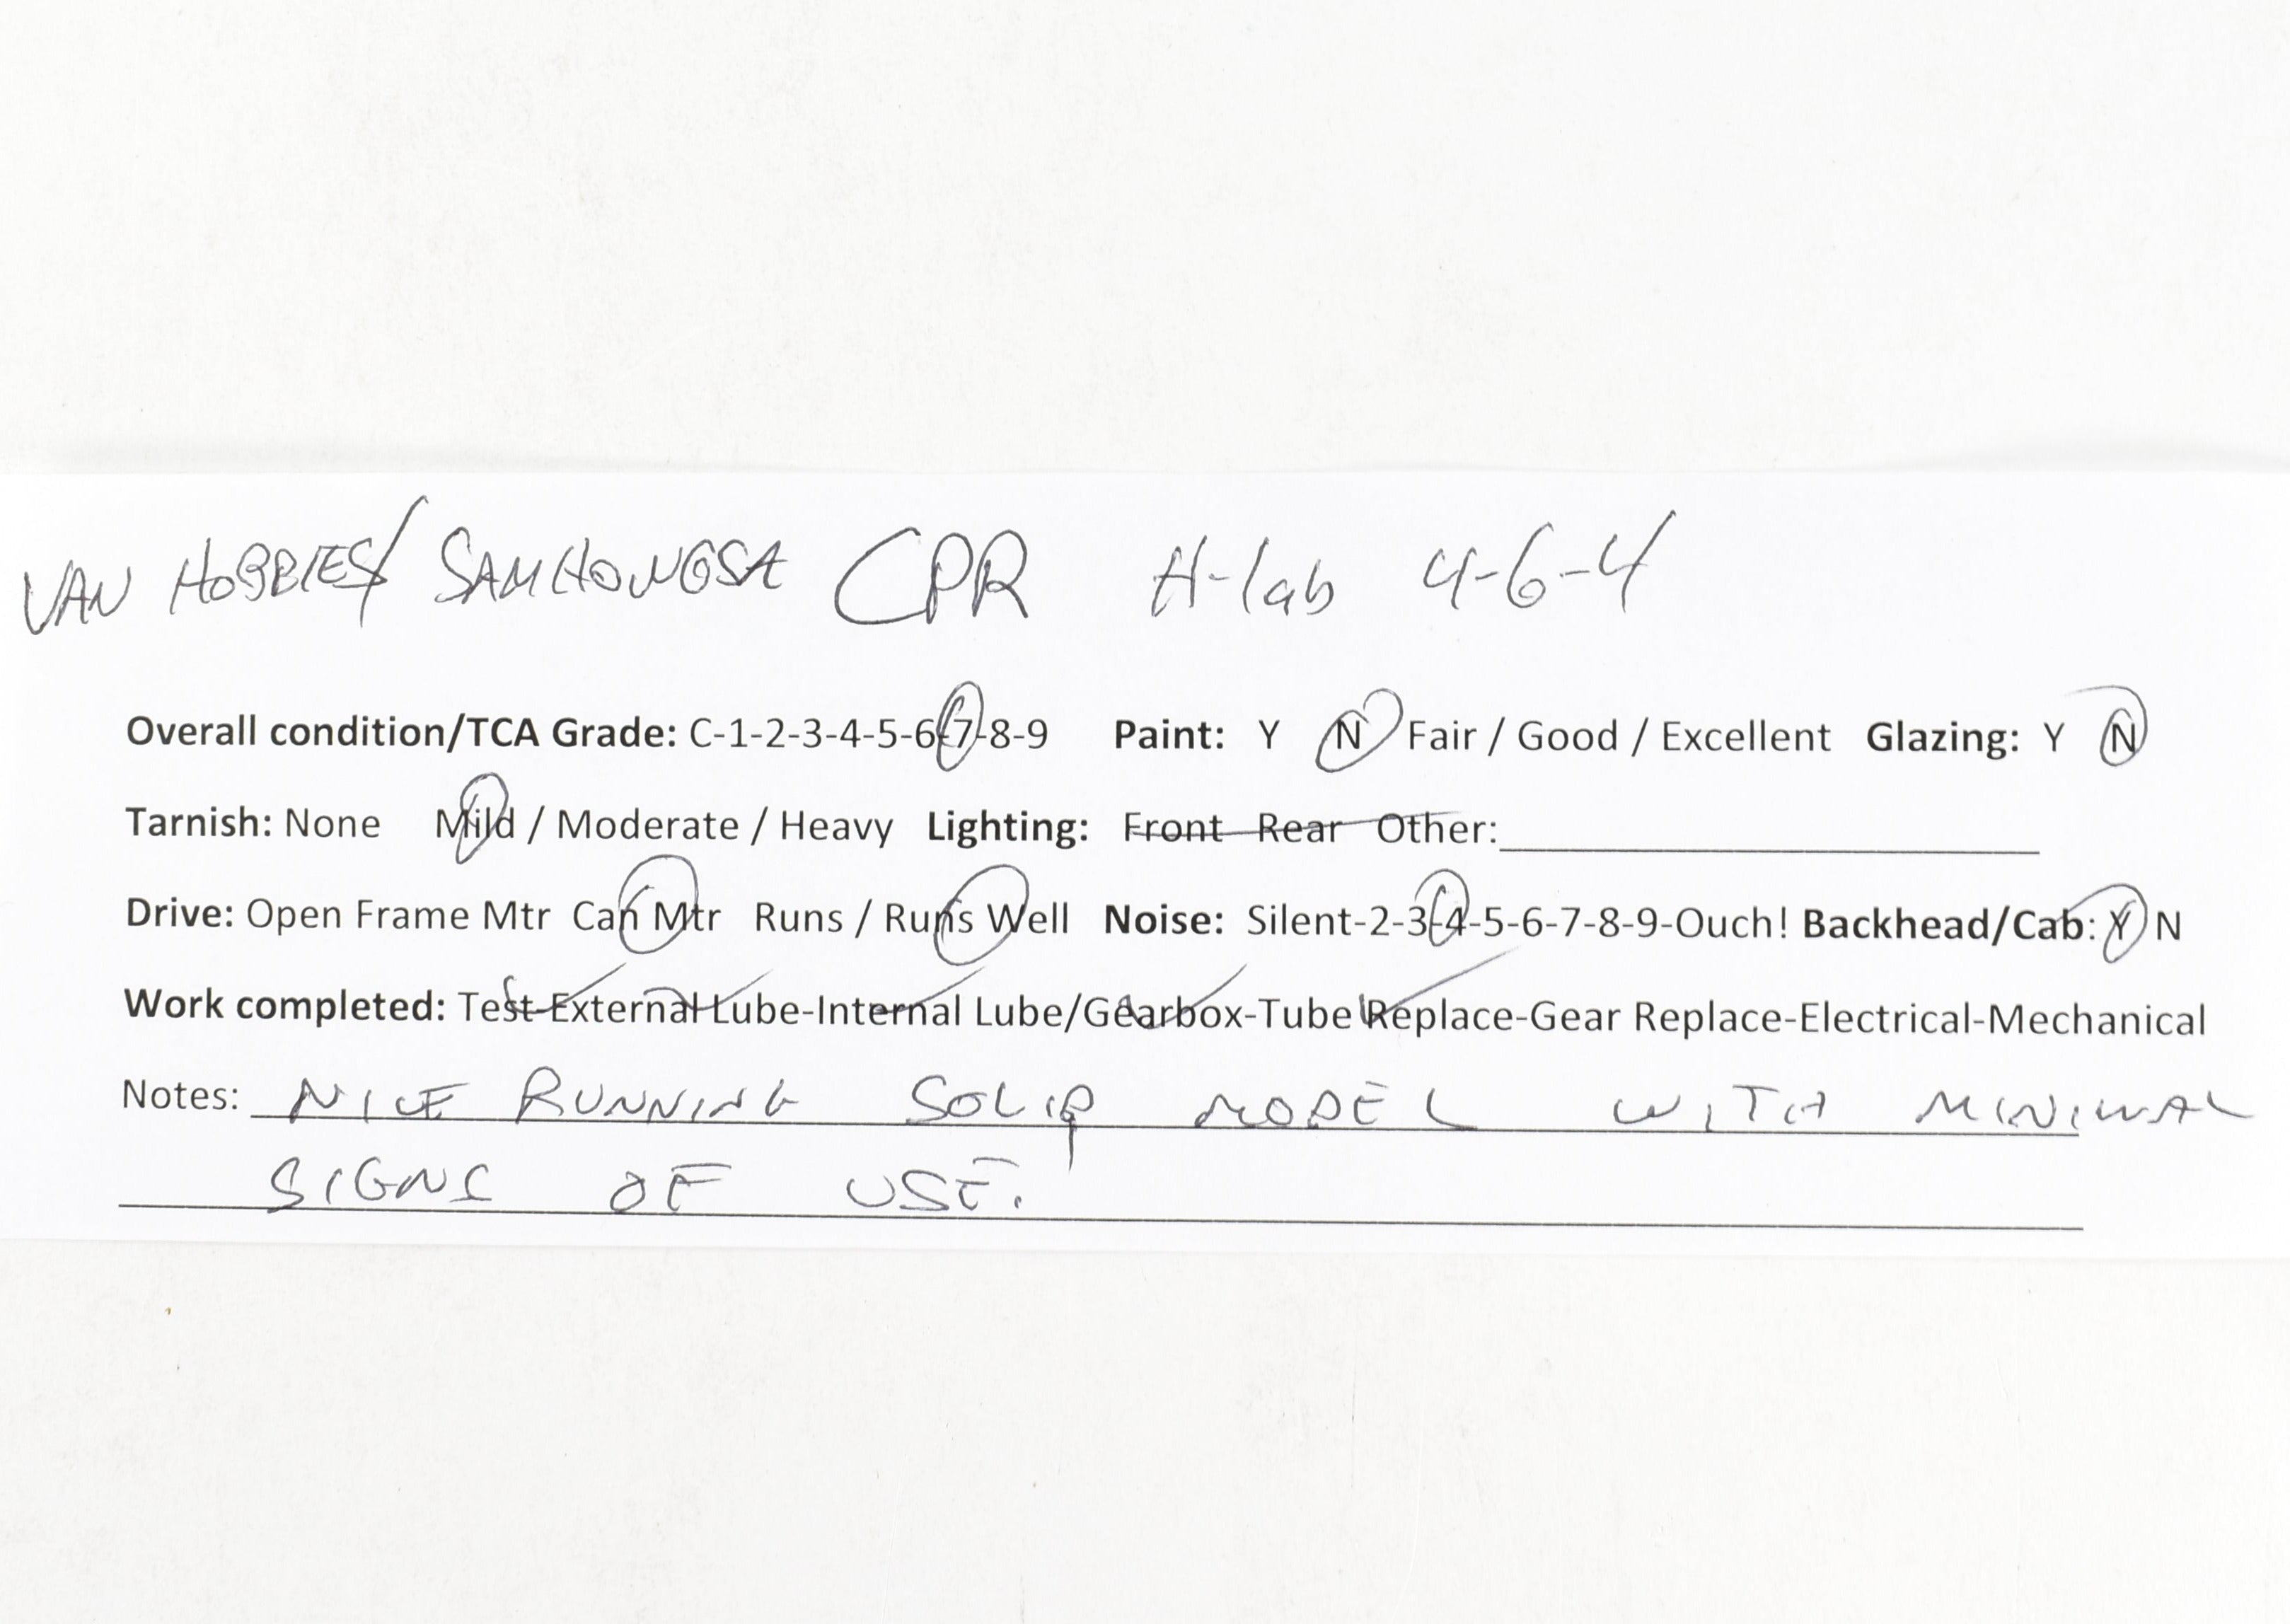 VAN HOBBIES/ SAMHONGSA CPR H-1ab 4-6-4
Overall condition/TCA Grade: C-1-2-3-4-5-6-7-8-9 Paint: Y N Fair / Good / Excellent Glazing: Y N
Tarnish: None Mild / Moderate / Heavy Lighting: Front Rear Other:
Drive: Open Frame Mtr Can Mtr Runs / Runs Well Noise: Silent-2-3-4-5-6-7-8-9-Ouch! Backhead/Cab: Y N
Work completed: Test-External Lube-Internal Lube/Gearbox-Tube Replace-Gear Replace-Electrical-Mechanical
Notes: NICE RUNNING SOLID MODEL WITH MINIMAL
SIGNS OF USE.